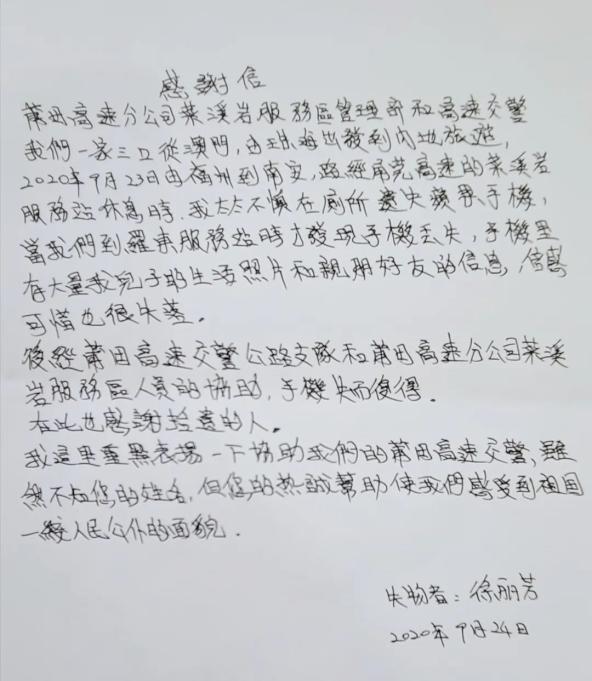 感謝信
莆田高速分公司菜溪岩服務區管理部和高速交警
我們一家三口從澳門，由珠海出發到內地旅遊，
2020年9月23日由福州到南安，路經甬莞高速的菜溪岩
服務站休息時，我太太不慎在廁所遺失蘋果手機，
當我們到羅東服務站時才發現手機丟失，手機里
存大量我兒子的生活照片和親朋好友的信息，倍感
可惜也很失落。
後經莆田高速交警公路支隊和莆田高速分公司菜溪
岩服務區人員的協助，手機失而復得。
在此也感謝拾遺的人。
我這里重點表揚一下協助我們的莆田高速交警，雖
然不知您的姓名，但您的热誠幫助使我們感受到祖国
一綫人民公仆的面貌．
失物者：徐丽芳
2020年9月24日